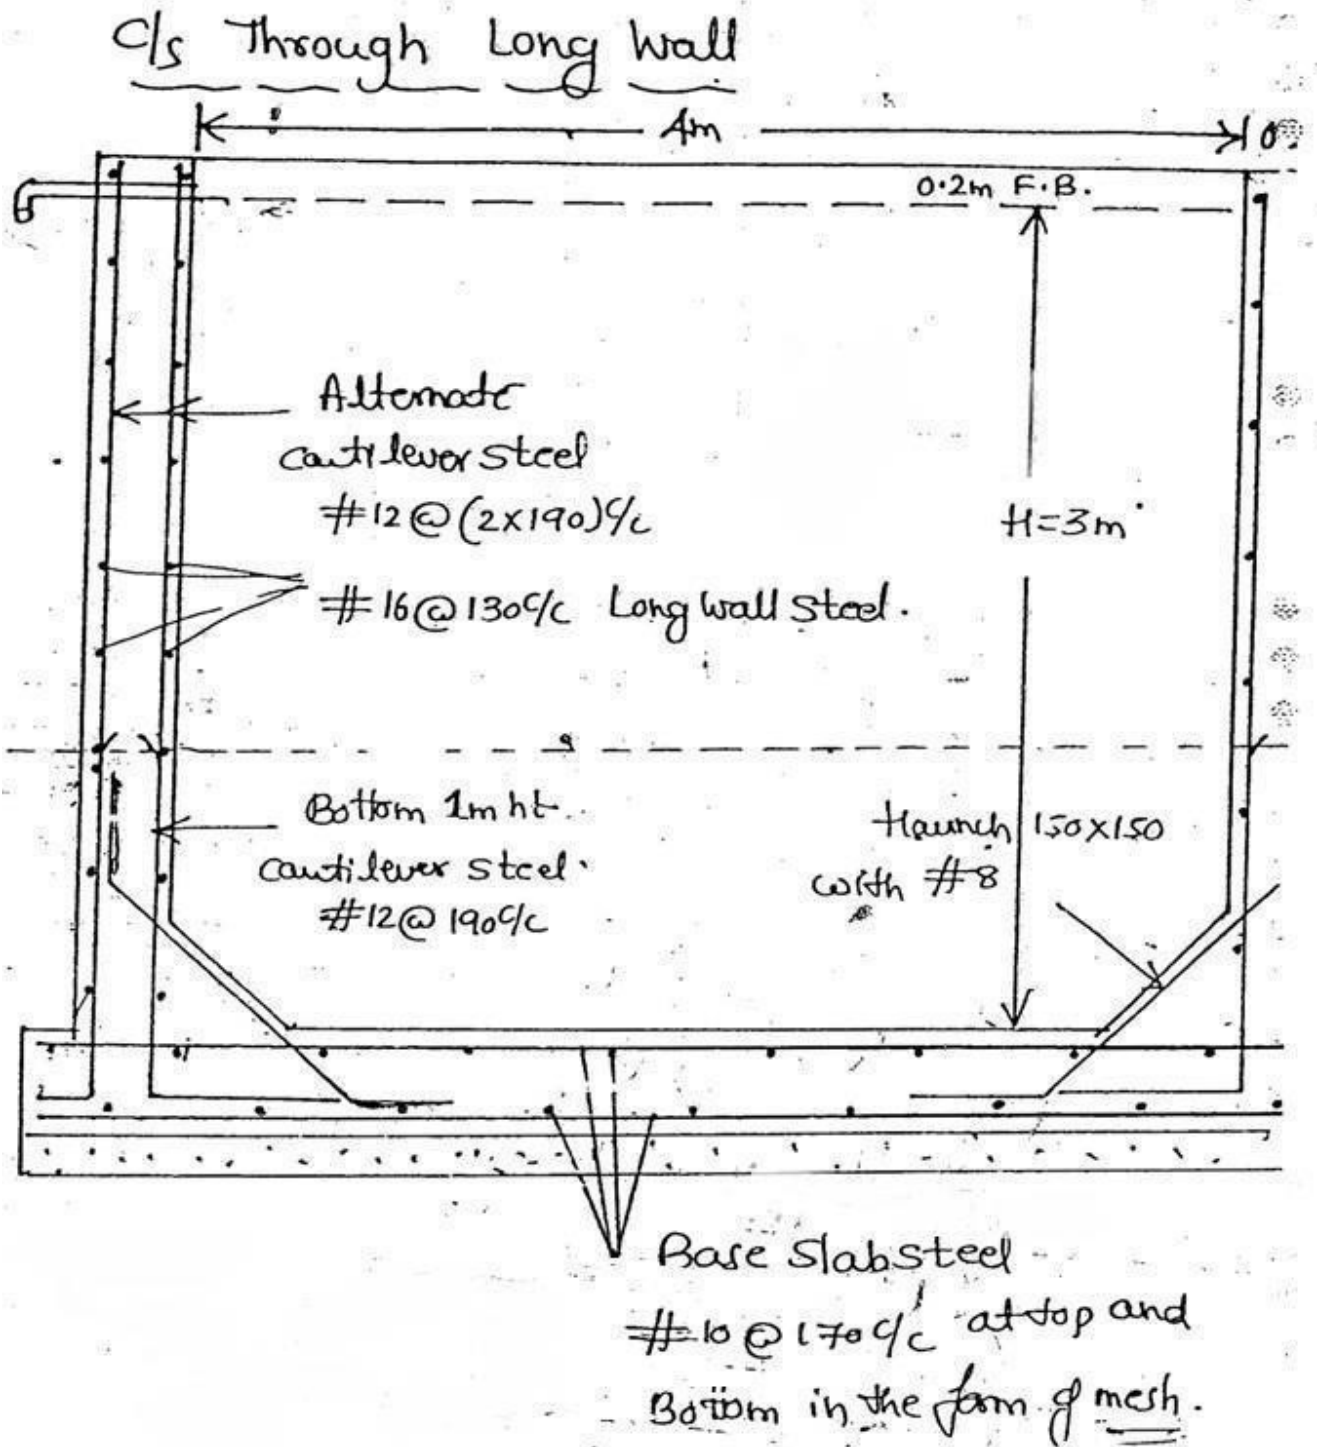 C/s Through Long Wall
4m
0.2m F.B.
Alternate
cantilever steel
#12@(2x190)c/c
H=3m
#16@130c/c Long wall steel.
Bottom 1m ht.
cantilever steel.
#12@190c/c
Haunch 150x150
with #8
Base slab steel
#10@170c/c at top and
Bottom in the form of mesh.